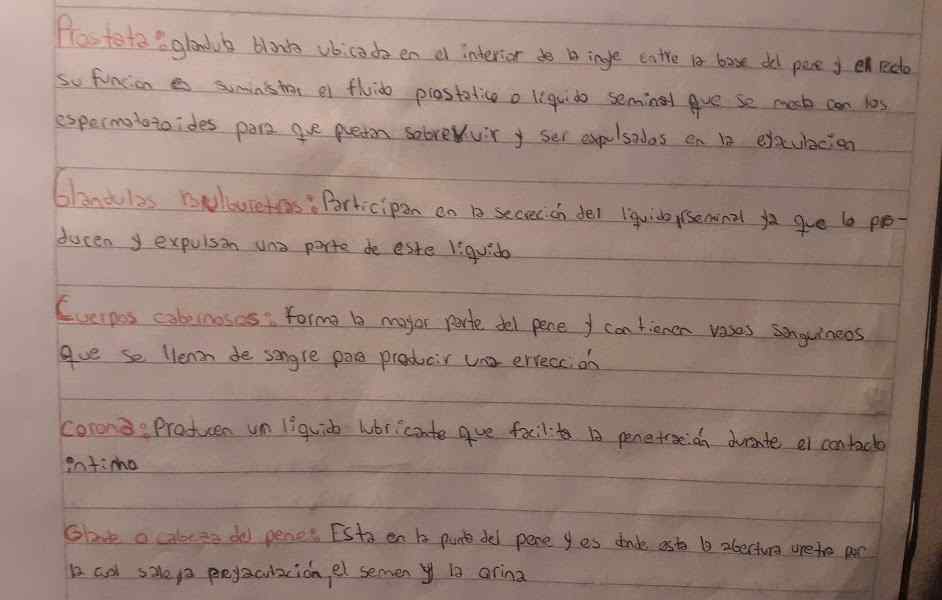 Prostata: glandula blanda ubicada en el interior de la ingle entre la base del pene y el recto
su función es suministrar el fluido prostatico o líquido seminal que se mezcla con los
espermatozoides para que puedan sobrevivir y ser expulsados en la eyaculación
Glandulas bulburetras: Participan en la secreción del liquido seminal ya que lo pro-
ducen y expulsan una parte de este líquido
Cuerpos cabernosos: Forma la mayor parte del pene y contienen vasos sanguineos
que se llenan de sangre para producir una errección
Corona: Producen un líquido lubricante que facilita la penetración durante el contacto
intimo
Glande o cabeza del pene: Esta en la punta del pene y es donde esta la abertura uretra por
la cual sale la preyaculación, el semen y la orina